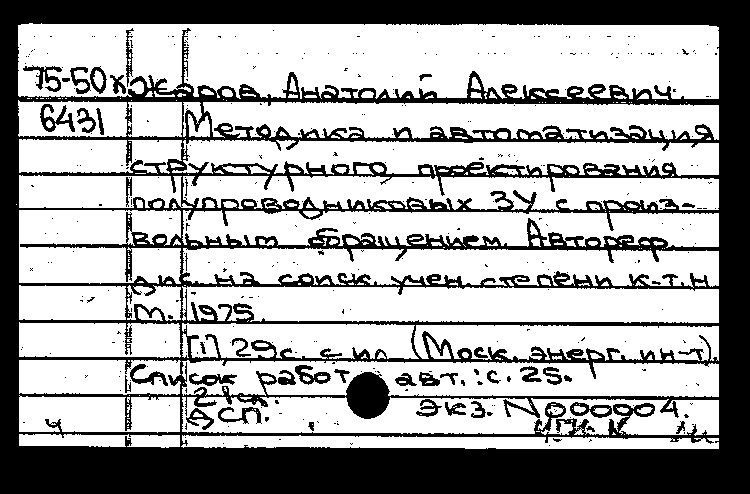 75-50к Жаров, Анатолий Алексеевич.
6431 Методика и автоматизация
структурного проектирования
полупроводниковых ЗУ с произ-
вольным обращением. Автореф.
дис. на соиск. учен. степени к.т.н
М. 1975.
[1], 29с. с ил (Моск. энерг. ин-т).
Список работ авт.: с. 25.
ДСП. Экз. N000004.
ч